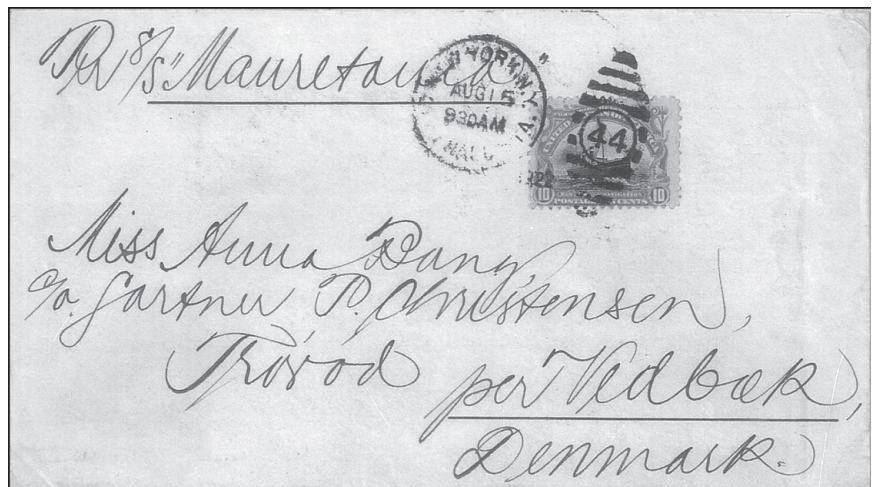 Pr S/S "Mauretania"
NEW YORK, N.Y.
STA.
AUG 15
930AM
1922
44
10 10
POSTAGE TEN CENTS
Miss Anna Bang,
c/o. Gartner P. Christensen,
Trørød
per Vedbæk,
Denmark.